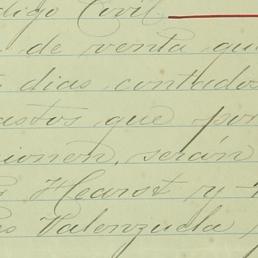 digo Civil
de venta que
dias contados
astos que por
sionen, serán
Hearst y
Valenzuela